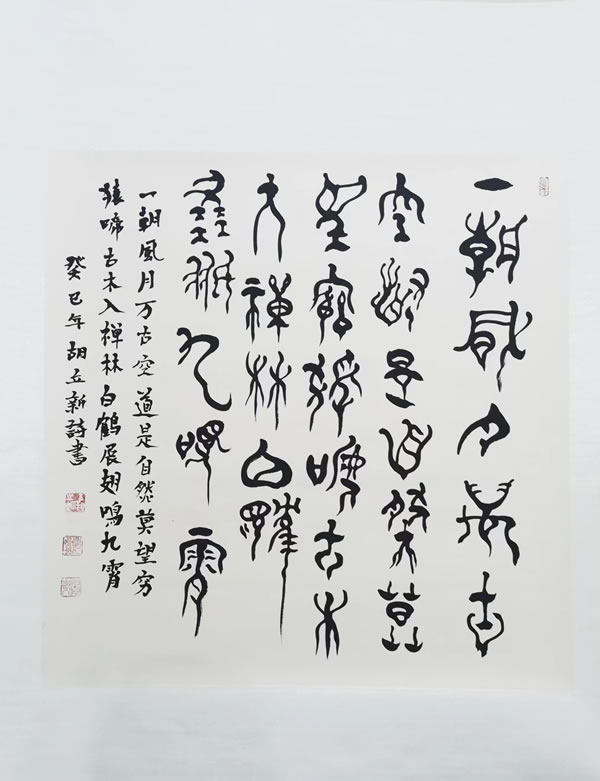 一朝風月萬古
空道是自然莫
望窮猿啼古木
入禪林白鶴
展翅九鳴霄
一朝風月万古空道是自然莫望穷
猿啼古木入禅林白鶴展翅鳴九霄
癸巳年胡立新詩書